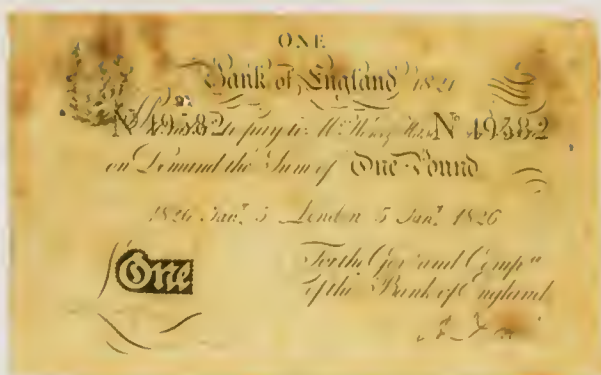 ONE
Bank of England 1821
Nº 49382 to pay to Mr. Nº 49382
on Demand the Sum of One Pound
1826 Jany. 5 London 5 Jany. 1826
One
For the Govr. and Compa.
of the Bank of England